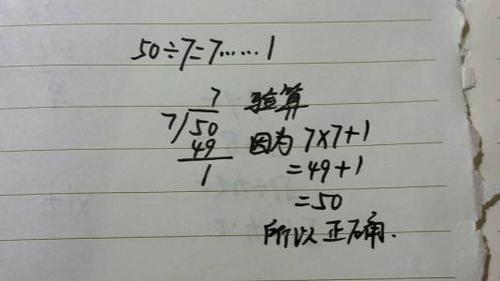 50÷7=7……1
7
7/50
49
1
验算
因为 7×7+1
=49+1
=50
所以正确.